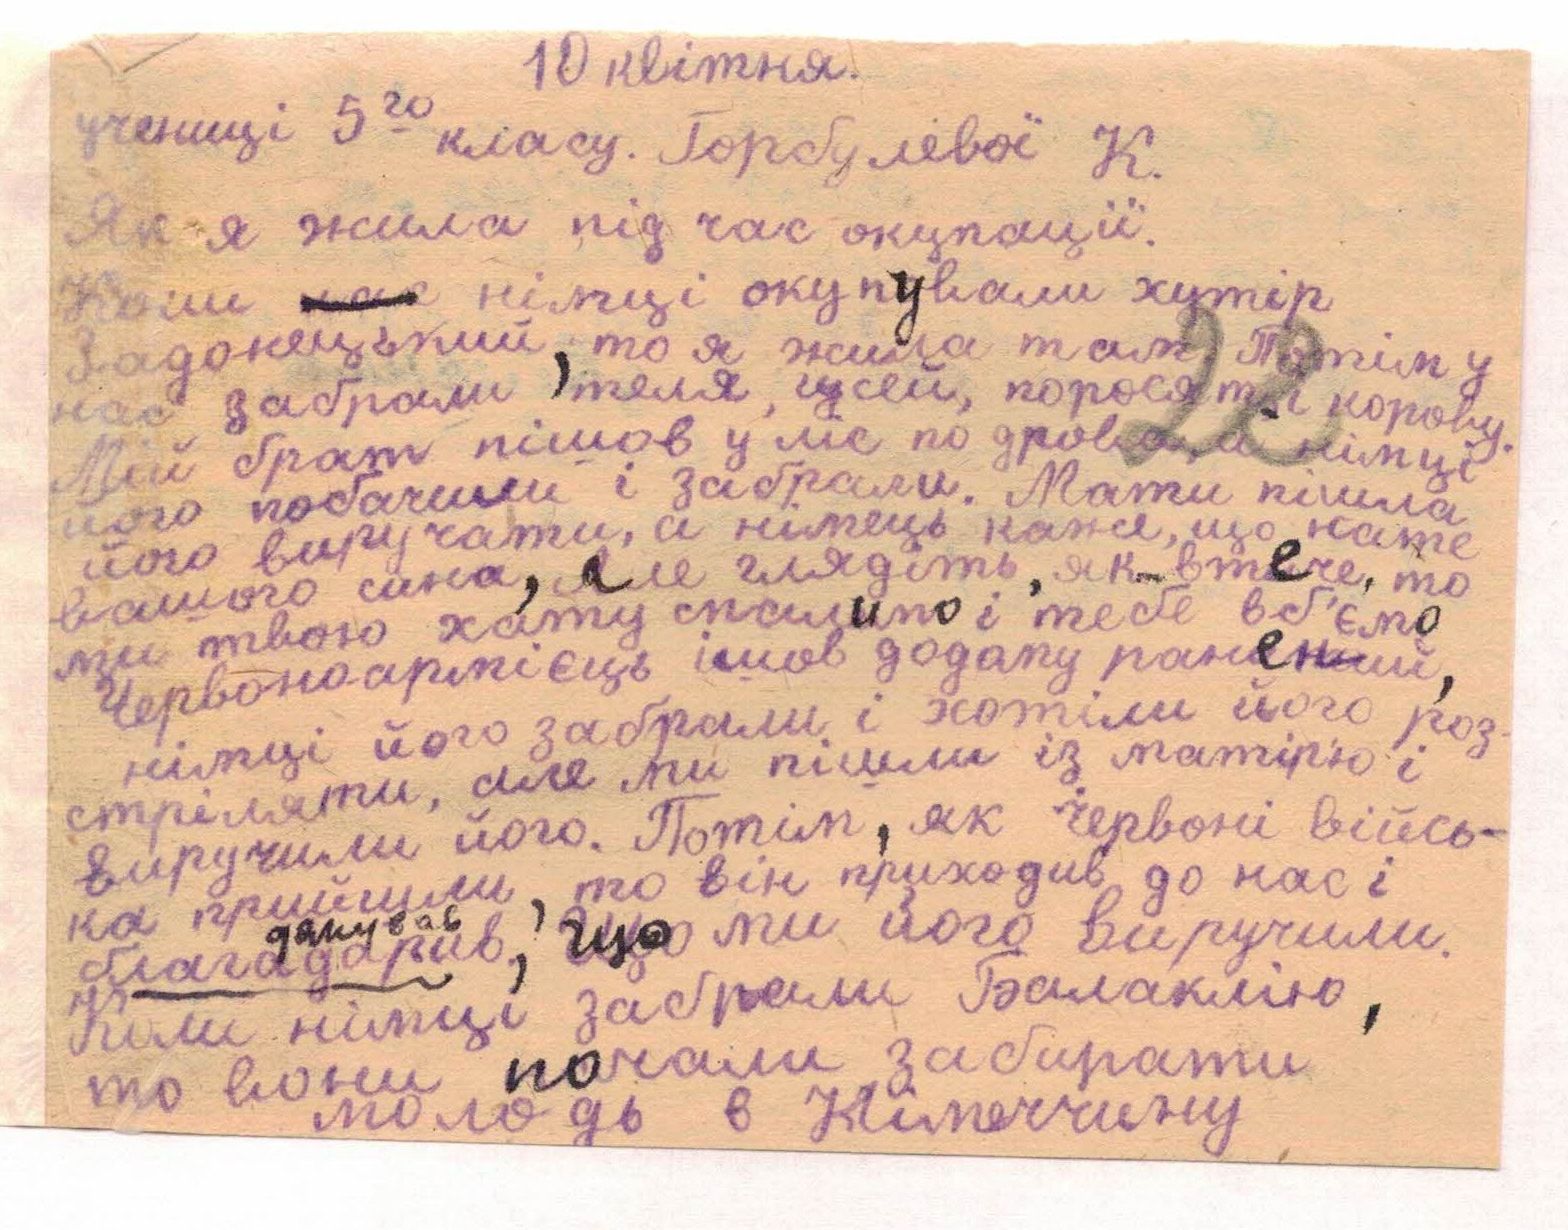 10 квітня.
учениці 5го класу. Горбулевої К.
Як я жила під час окупації.
Коли нас німці окупували хутір
Задонецький, то я жила там. Потім у
нас забрали, теля, гусей, порося та корову.
Мій брат пішов у ліс по дрова, а німці
його побачили і забрали. Мати пішла
його виручати, а німець каже, що нате
вашого сина, але глядіть, як втече, то
ми твою хату спалимо і тебе вб'ємо
Червоноармієць ішов додому ранений,
німці його забрали і хотіли його роз-
стріляти, але ми пішли із матір'ю і
виручили його. Потім, як Червоні війсь-
ка прийшли, то він приходив до нас і
дякував
благадарив, що ми його виручили.
Коли німці забрали Балаклію,
то вони почали забирати
молодь в Німеччину
22